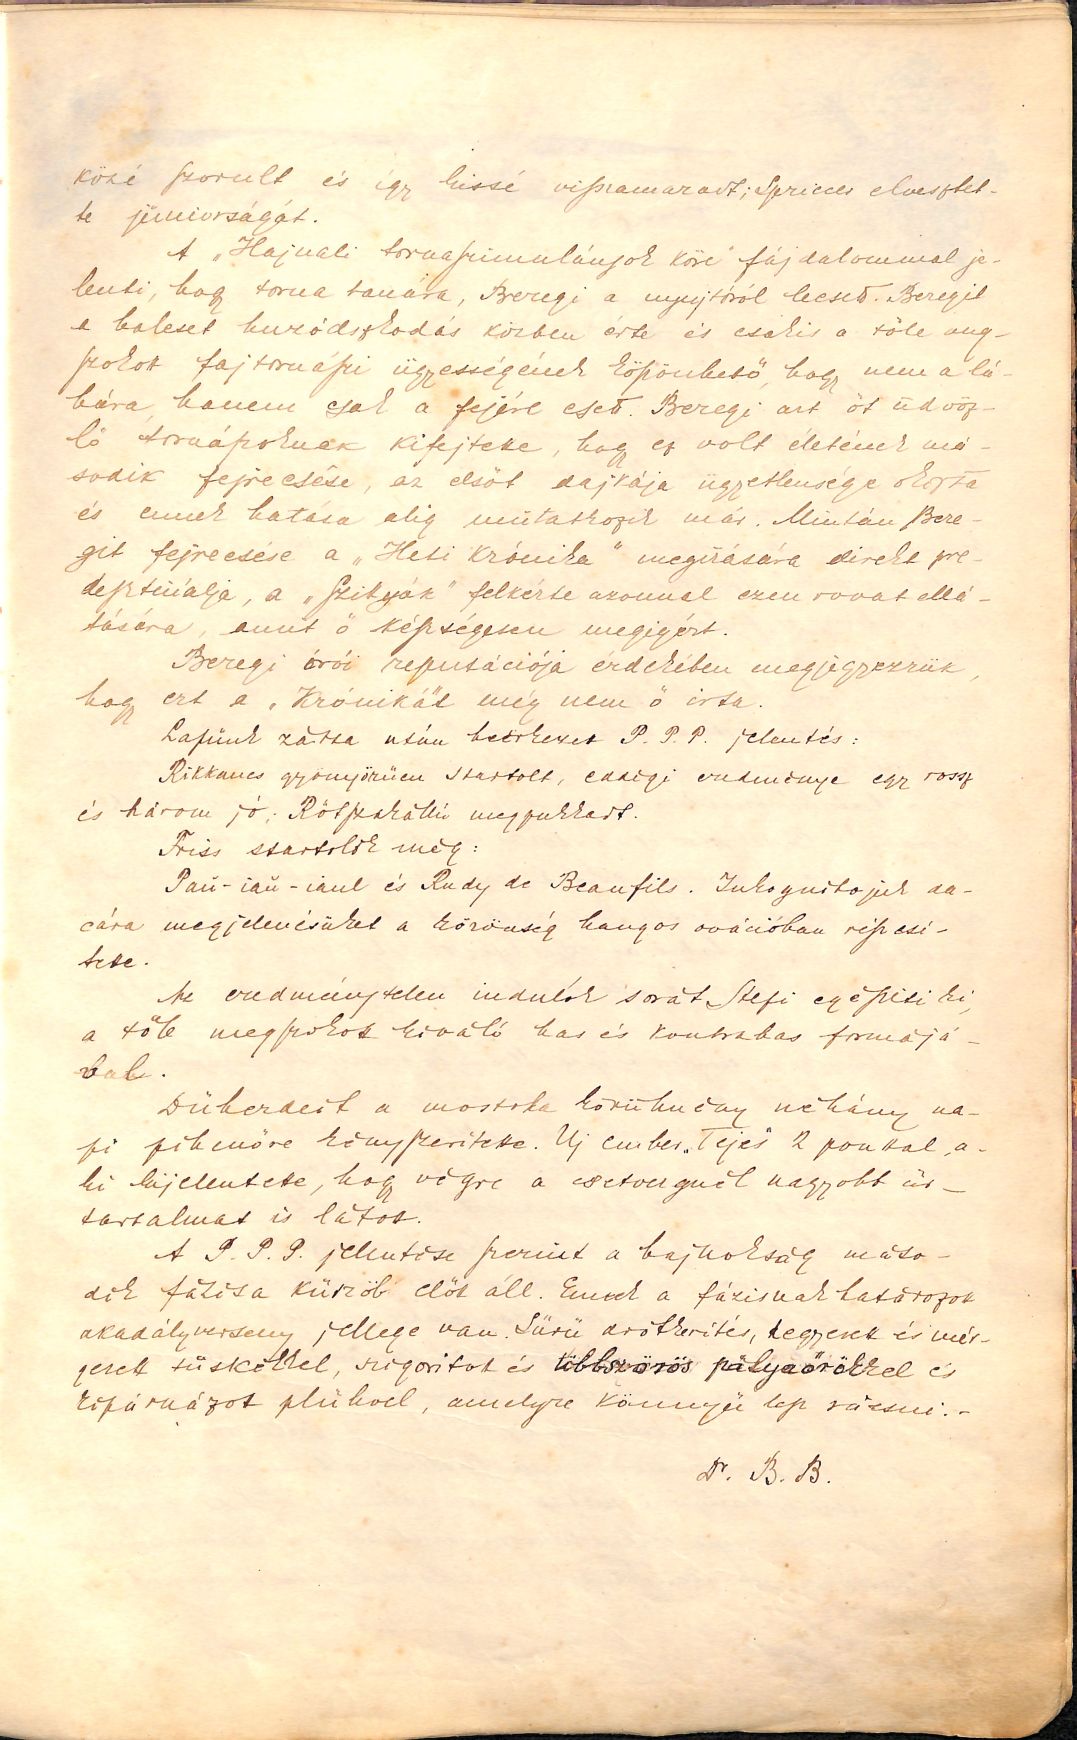 közé szorult és így kissé visszamaradt; Spricces elvesztet-
te júniorságát.
A „Hajnali tornaprimulányok köre” fájdalommal je-
lenti, hogy torna tanára, Beregi a nyujtóról leesett. Beregit
a baleset huzódszkodás közben érte és csakis a tőle meg-
szokott fajtornászi ügyességének köszönhető, hogy nem a lá-
bára, hanem csak a fejére esett. Beregi azt őt üdvöz-
lő tornászoknak kifejtette, hogy ez volt életének má-
sodik fejreesése, az elsőt dajkája ügyetlensége okozta
és ennek hatása alig mutatkozik már. Miután Bere-
git fejreesése a „Heti Krónika” megirására direkt pre-
desztinálja, a „Szityák” felkérte azonnal ezen rovat ellá-
tására, amit ő készségesen megigért.
Beregi írói reputációja érdekében megjegyezzük,
hogy ezt a „Krónikát” még nem ő irta.
Lapunk zárta után beérkezett P. P. P. jelentés:
Rikkancs gyönyörüen startolt, eddigi eredménye egy rossz
és három jó; Rőtszakállú megpukkadt.
Friss startolók még:
Paü-iaü-iaul és Rudy de Beaufils. Inkognitojuk da-
cára megjelenésüket a közönség hangos ovációban részesi-
tette.
Az eredménytelen indulók sorát Stefi egésziti ki,
a tőle megszokott kiváló has és kontrabas formájá-
val.
Düherdeit a mostoha körülmény néhány na-
pi pihenőre kényszeritette. Uj ember „Tejes” 2 ponttal, a-
ki kijelentette, hogy végre a csetvergnél nagyobb űr-
tartalmat is látott.
A P. P. P. jelentése szerint a bajnokság máso-
dik fázisa küszöb előtt áll. Ennek a fázisnak határozott
akadályverseny jellege van. Sürü drótkerités, hegyezett és mér-
gezett tüskékkel, szigoritott és többszörös pályaőrökkel és
kipárnázott plühvel, amelyre könnyü lesz ráesni.-
Dr. B. B.